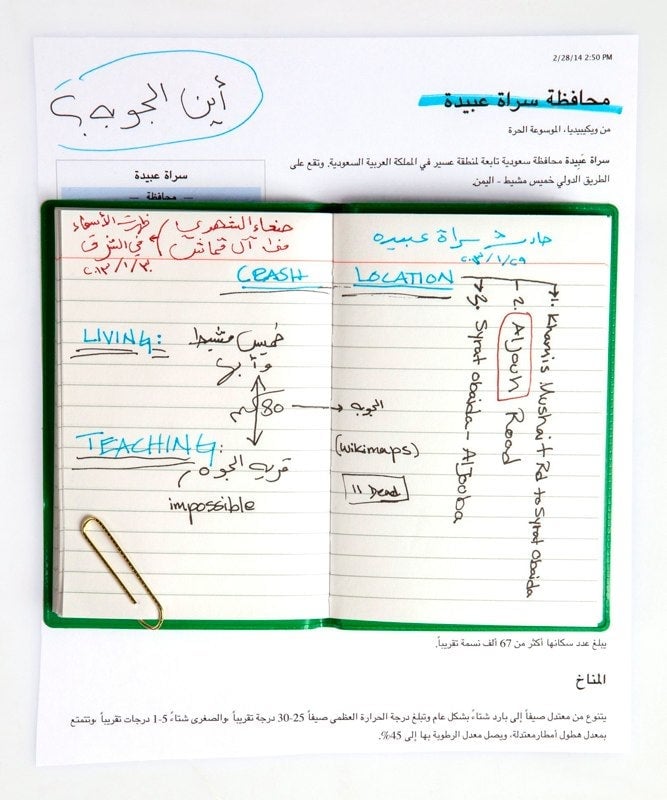 2/28/14 2:50 PM
أين الجوبه؟
محافظة سراة عبيدة
من ويكيبيديا، الموسوعة الحرة
سراة عَبِيدة محافظة سعودية تابعة لمنطقة عسير في المملكة العربية السعودية. وتقع على
الطريق الدولي خميس مشيط - اليمن.
سراة عبيدة
— محافظة —
صنعاء الشهري
ظهرت الأسماء
في الشرق
٢٠١٣/١/٣٠
CRASH
LIVING:
خميس مشيط
وأبها
80 كم
TEACHING:
قرية الجوه
impossible
حادث سراة عبيده
LOCATION
1. Khamis Mushait Rd to Syrat Obaida
2. Aljouh Road
3. Syrat Obaida - AlJooba
الجوبه
(Wikimaps)
11 Dead
يبلغ عدد سكانها أكثر من 67 ألف نسمة تقريباً.
المناخ
يتنوع من معتدل صيفاً إلى بارد شتاءً بشكل عام وتبلغ درجة الحرارة العظمى صيفاً 25-30 درجة تقريباً ،والصغرى شتاءً 1-5 درجات تقريباً ،وتتمتع
بمعدل هطول أمطارمعتدلة، ويصل معدل الرطوبة بها إلى 45%.